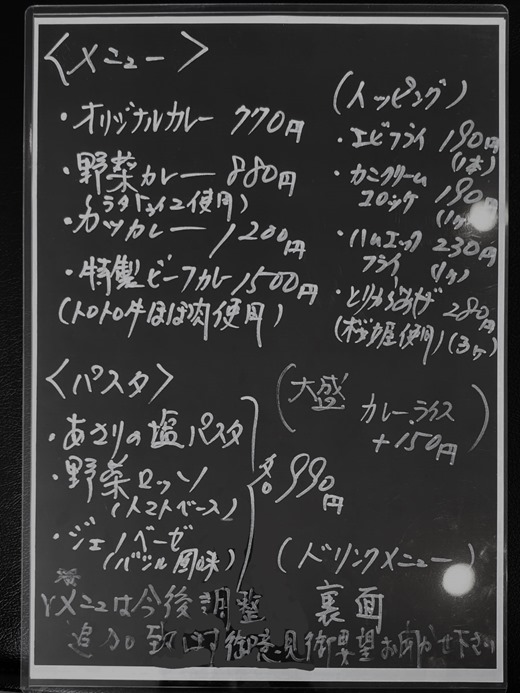 〈メニュー〉
・オリジナルカレー 770円
・野菜カレー 880円
(ラタトゥイユ使用)
・カツカレー 1200円
・特製ビーフカレー 1500円
(トロトロ牛ほほ肉使用)
(トッピング)
・エビフライ 190円
(1本)
・カニクリーム
コロッケ 190円
(1ヶ)
・ハムエッグ 230円
フライ (1ヶ)
・とりからあげ 280円
(桜姫使用)(3ヶ)
(大盛 カレー、ライス
+150円)
〈パスタ〉
・あさりの塩パスタ
・野菜ロッソ
(トマトベース)
・ジェノベーゼ
(バジル風味)
各990円
(ドリンクメニュー)
裏面
メニューは今後調整
追加致 御意見御要望お聞かせ下さい